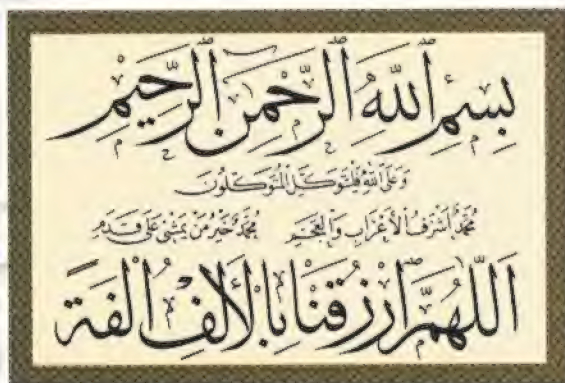 بِسْمِ اللهِ الرَّحْمٰنِ الرَّحِيْمِ
وَعَلَى اللهِ فَلْيَتَوَكَّلِ الْمُتَوَكِّلُونَ
مُحَمَّدٌ أَشْرَفُ الْأَعْرَابِ وَالْعَجَمِ مُحَمَّدٌ خَيْرُ مَنْ يَمْشِي عَلَى قَدَمِ
اَللّٰهُمَّ ارْزُقْنَا بِالْأَلِفِ أُلْفَةً